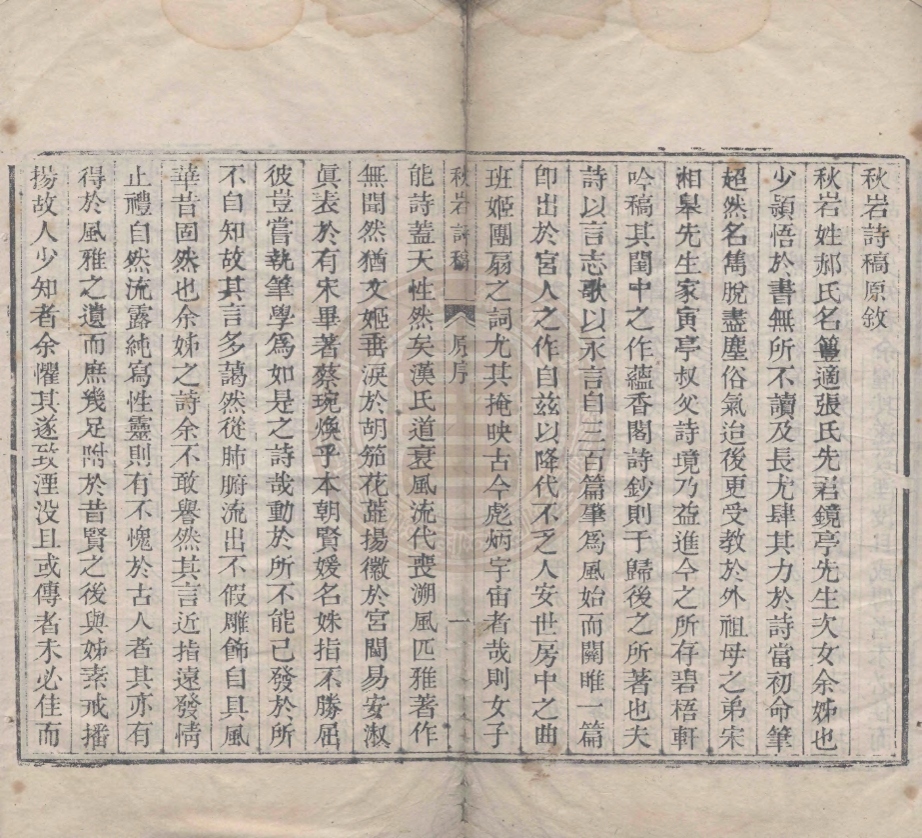 秋岩詩稿原敘
秋岩姓郝氏名簠適張氏先君鏡亭先生次女余姊也
少穎悟於書無所不讀及長尤肆其力於詩當初命筆
超然名雋脫盡塵俗氣迨後更受教於外祖母之弟宋
湘皋先生家寅亭叔父詩境乃益進今之所存碧梧軒
吟稿其閨中之作蘊香閣詩鈔則于歸後之所著也夫
詩以言志歌以永言自三百篇肇為風始而關雎一篇
卽出於宮人之作自兹以降代不乏人安世房中之曲
班姬團扇之詞尤其掩映古今彪炳宇宙者哉則女子
秋岩詩稿 原序 一
能詩蓋天性然矣漢氏道衰風流代喪溯風匹雅著作
無聞然猶文姬垂淚於胡笳花蕋揚徽於宮閫易安淑
眞表於有宋畢著蔡琬煥乎本朝賢媛名姝指不勝屈
彼豈嘗執筆學為如是之詩哉動於所不能已發於所
不自知故其言多藹然從肺腑流出不假雕飾自具風
華昔固然也余姊之詩余不敢譽然其言近指遠發情
止禮自然流露純寫性靈則有不愧於古人者其亦有
得於風雅之遺而庶幾足附於昔賢之後與姊素戒播
揚故人少知者余懼其遂致湮没且或傳者未必佳而